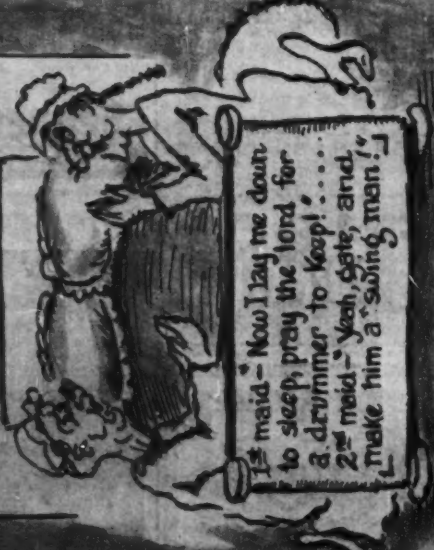 1st maid-"Now I lay me down
to sleep, pray the lord for
a drummer to keep!".....
2nd maid-"Yeah, gate, and
make him a "swing man!"